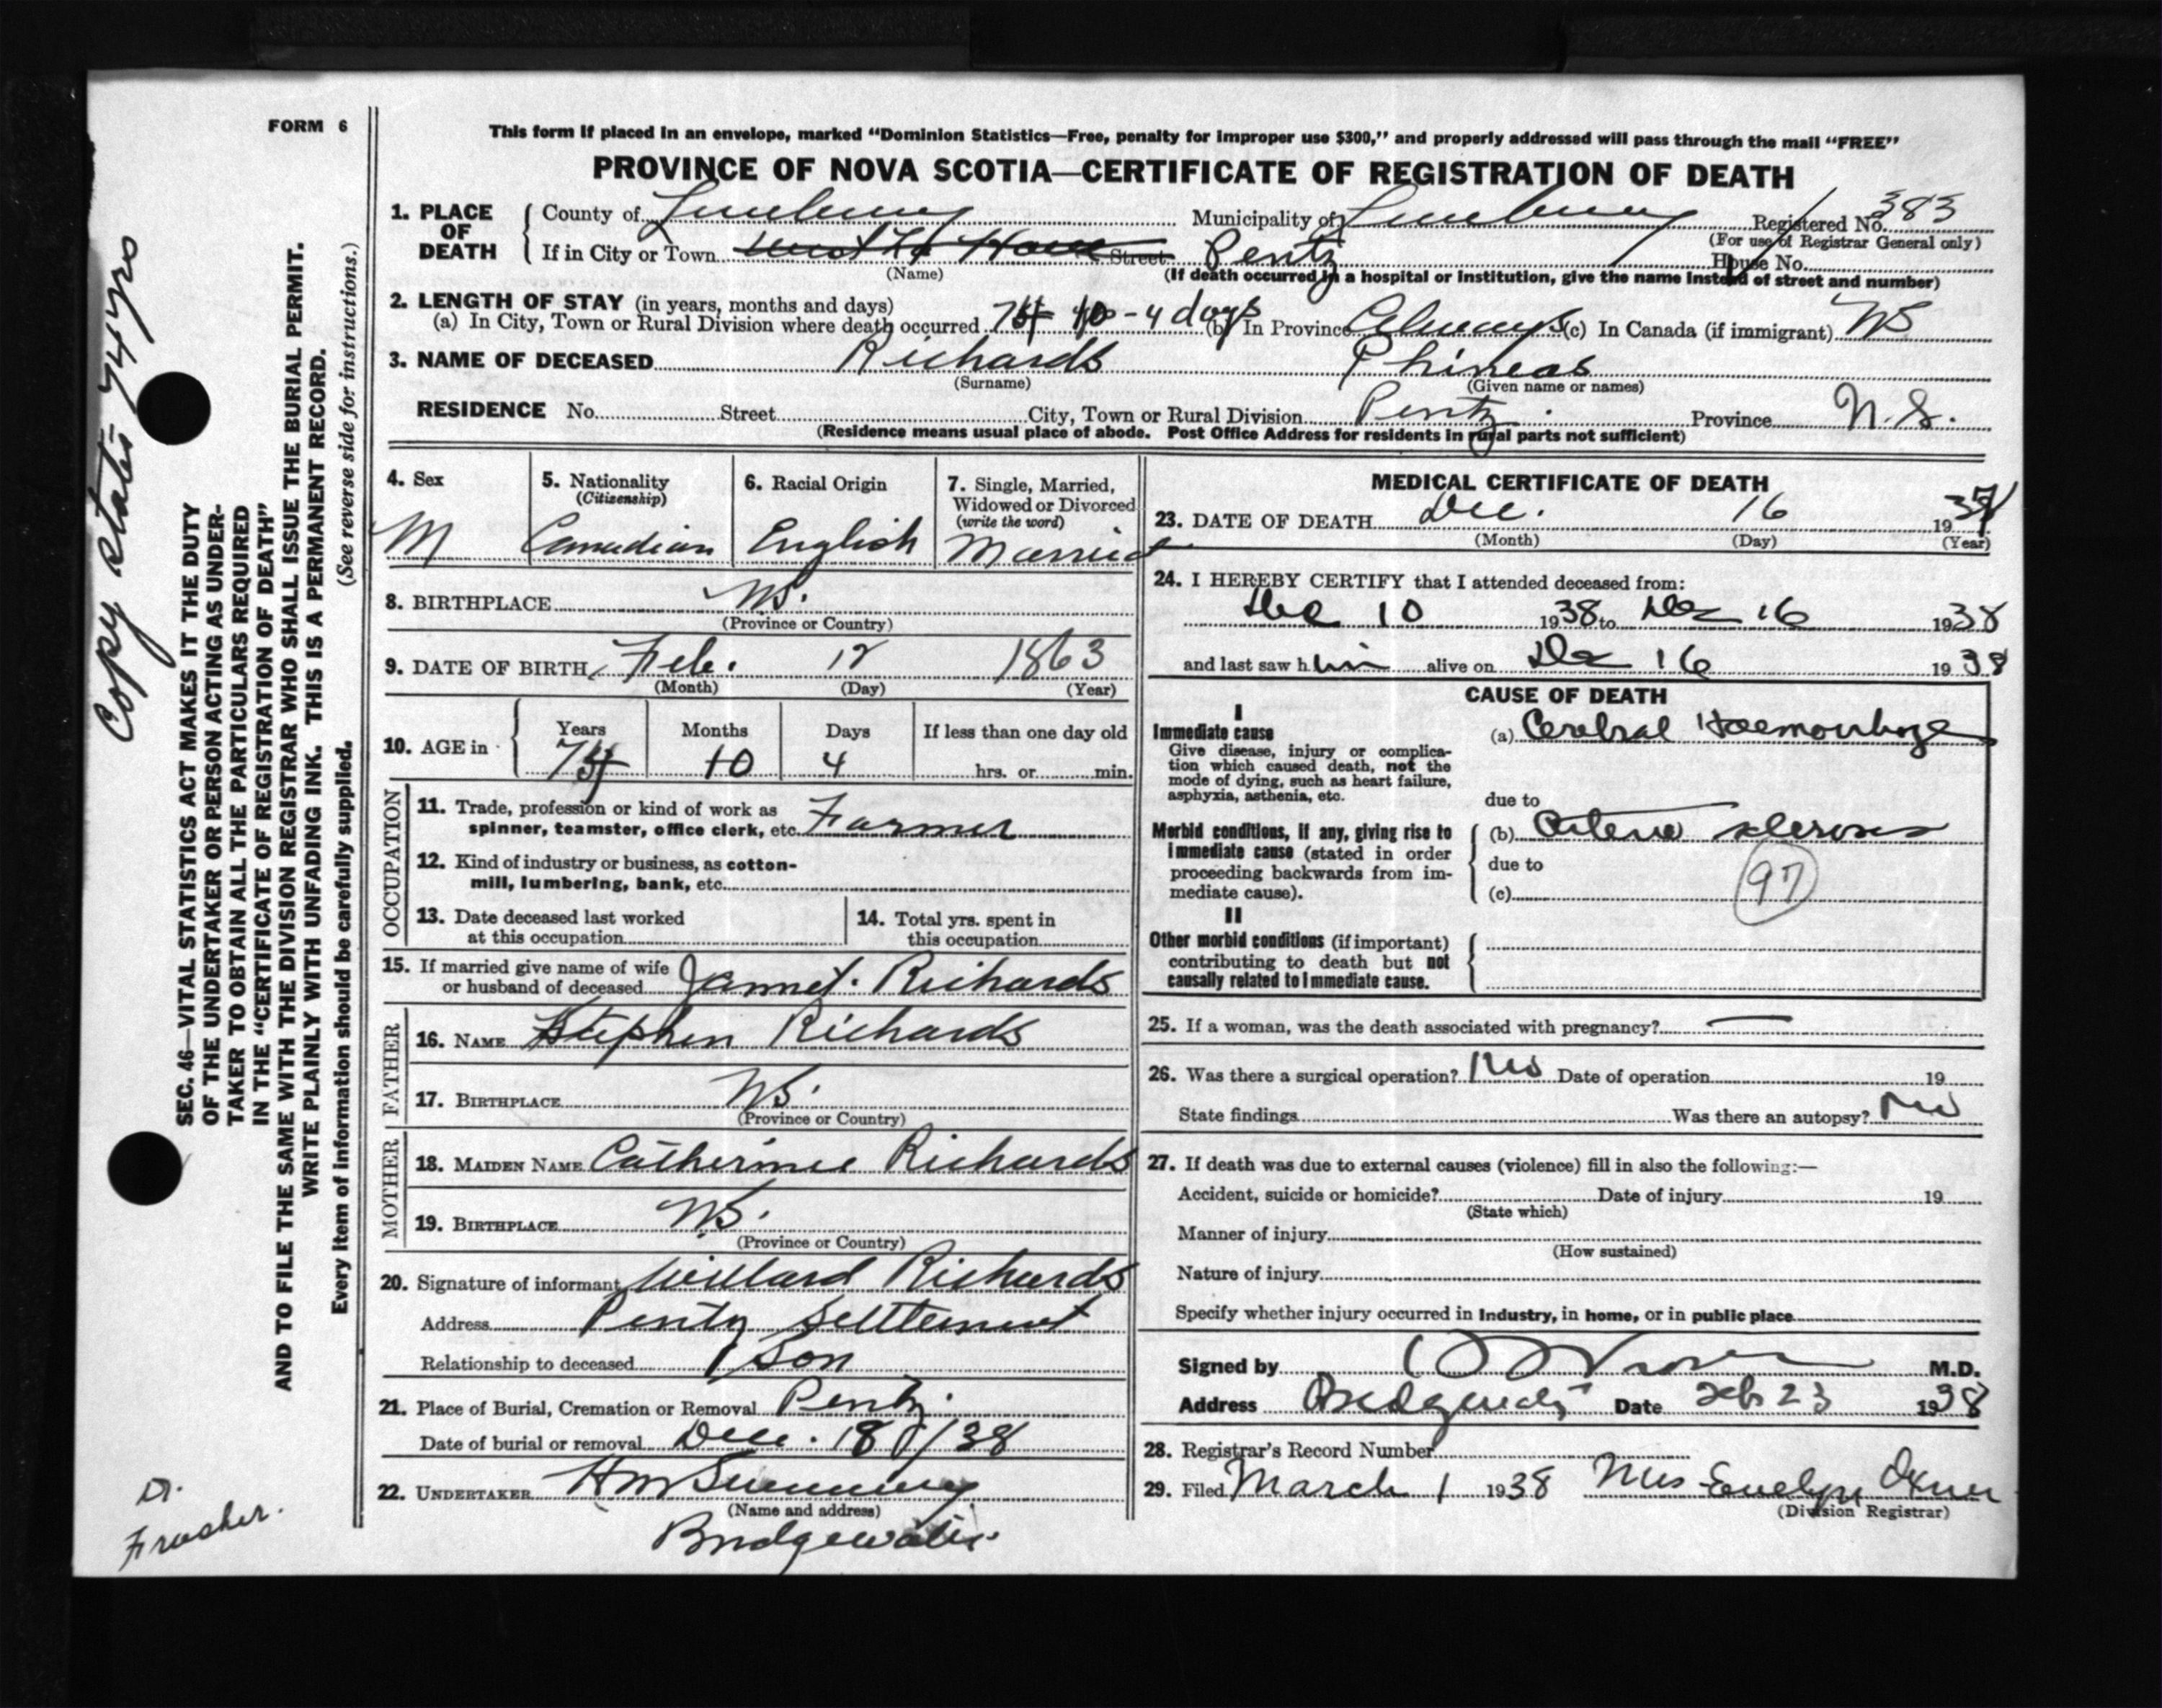 FORM 6
This form if placed in an envelope, marked “Dominion Statistics—Free, penalty for improper use $300,” and properly addressed will pass through the mail “FREE”
PROVINCE OF NOVA SCOTIA—CERTIFICATE OF REGISTRATION OF DEATH
1. PLACE OF DEATH { County of Lunenburg Municipality of Lunenburg Registered No. 383
(For use of Registrar General only)
If in City or Town Street Pentz House No.
(Name) (If death occurred in a hospital or institution, give the name instead of street and number)
2. LENGTH OF STAY (in years, months and days)
(a) In City, Town or Rural Division where death occurred 74 10 - 4 days (b) In Province Always (c) In Canada (if immigrant) NS
3. NAME OF DECEASED Richards Phineas
(Surname) (Given name or names)
RESIDENCE No. Street City, Town or Rural Division Pentz Province N.S.
(Residence means usual place of abode. Post Office Address for residents in rural parts not sufficient)
4. Sex M
5. Nationality (Citizenship) Canadian
6. Racial Origin English
7. Single, Married, Widowed or Divorced (write the word) Married
8. BIRTHPLACE NS.
(Province or Country)
9. DATE OF BIRTH Feb. 12 1863
(Month) (Day) (Year)
10. AGE in { Years 74 Months 10 Days 4 If less than one day old hrs. or min.
OCCUPATION
11. Trade, profession or kind of work as
spinner, teamster, office clerk, etc. Farmer
12. Kind of industry or business, as cotton-
mill, lumbering, bank, etc.
13. Date deceased last worked
at this occupation
14. Total yrs. spent in
this occupation
15. If married give name of wife
or husband of deceased Jannet. Richards
FATHER
16. NAME Stephen Richards
17. BIRTHPLACE NS.
(Province or Country)
MOTHER
18. MAIDEN NAME Catherine Richards
19. BIRTHPLACE NS.
(Province or Country)
20. Signature of informant Willard Richards
Address Pentz Settlement
Relationship to deceased Son
21. Place of Burial, Cremation or Removal Pentz.
Date of burial or removal Dec. 18/38
22. UNDERTAKER
(Name and address)
Bridgewater
MEDICAL CERTIFICATE OF DEATH
23. DATE OF DEATH Dec. 16 1937
(Month) (Day) (Year)
24. I HEREBY CERTIFY that I attended deceased from:
Dec 10 1938 to Dec 16 1938
and last saw him alive on Dec 16 1938
CAUSE OF DEATH
I
Immediate cause
Give disease, injury or complica-
tion which caused death, not the
mode of dying, such as heart failure,
asphyxia, asthenia, etc.
(a) Cerebral Haemorrhage
due to
Morbid conditions, if any, giving rise to
immediate cause (stated in order
proceeding backwards from im-
mediate cause).
(b) Arterio sclerosis
due to
(c)
97
II
Other morbid conditions (if important)
contributing to death but not
causally related to immediate cause.
25. If a woman, was the death associated with pregnancy? —
26. Was there a surgical operation? No Date of operation 19
State findings Was there an autopsy? No
27. If death was due to external causes (violence) fill in also the following:—
Accident, suicide or homicide? Date of injury 19
(State which)
Manner of injury
(How sustained)
Nature of injury
Specify whether injury occurred in industry, in home, or in public place
Signed by M.D.
Address Bridgewater Date Feb 23 1938
28. Registrar's Record Number
29. Filed March 1 1938 Mrs Evelyn
(Division Registrar)
SEC. 46—VITAL STATISTICS ACT MAKES IT THE DUTY
OF THE UNDERTAKER OR PERSON ACTING AS UNDER-
TAKER TO OBTAIN ALL THE PARTICULARS REQUIRED
IN THE “CERTIFICATE OF REGISTRATION OF DEATH”
AND TO FILE THE SAME WITH THE DIVISION REGISTRAR WHO SHALL ISSUE THE BURIAL PERMIT.
WRITE PLAINLY WITH UNFADING INK. THIS IS A PERMANENT RECORD.
Every item of information should be carefully supplied. (See reverse side for instructions.)
Copy states 74 yrs
Dr.